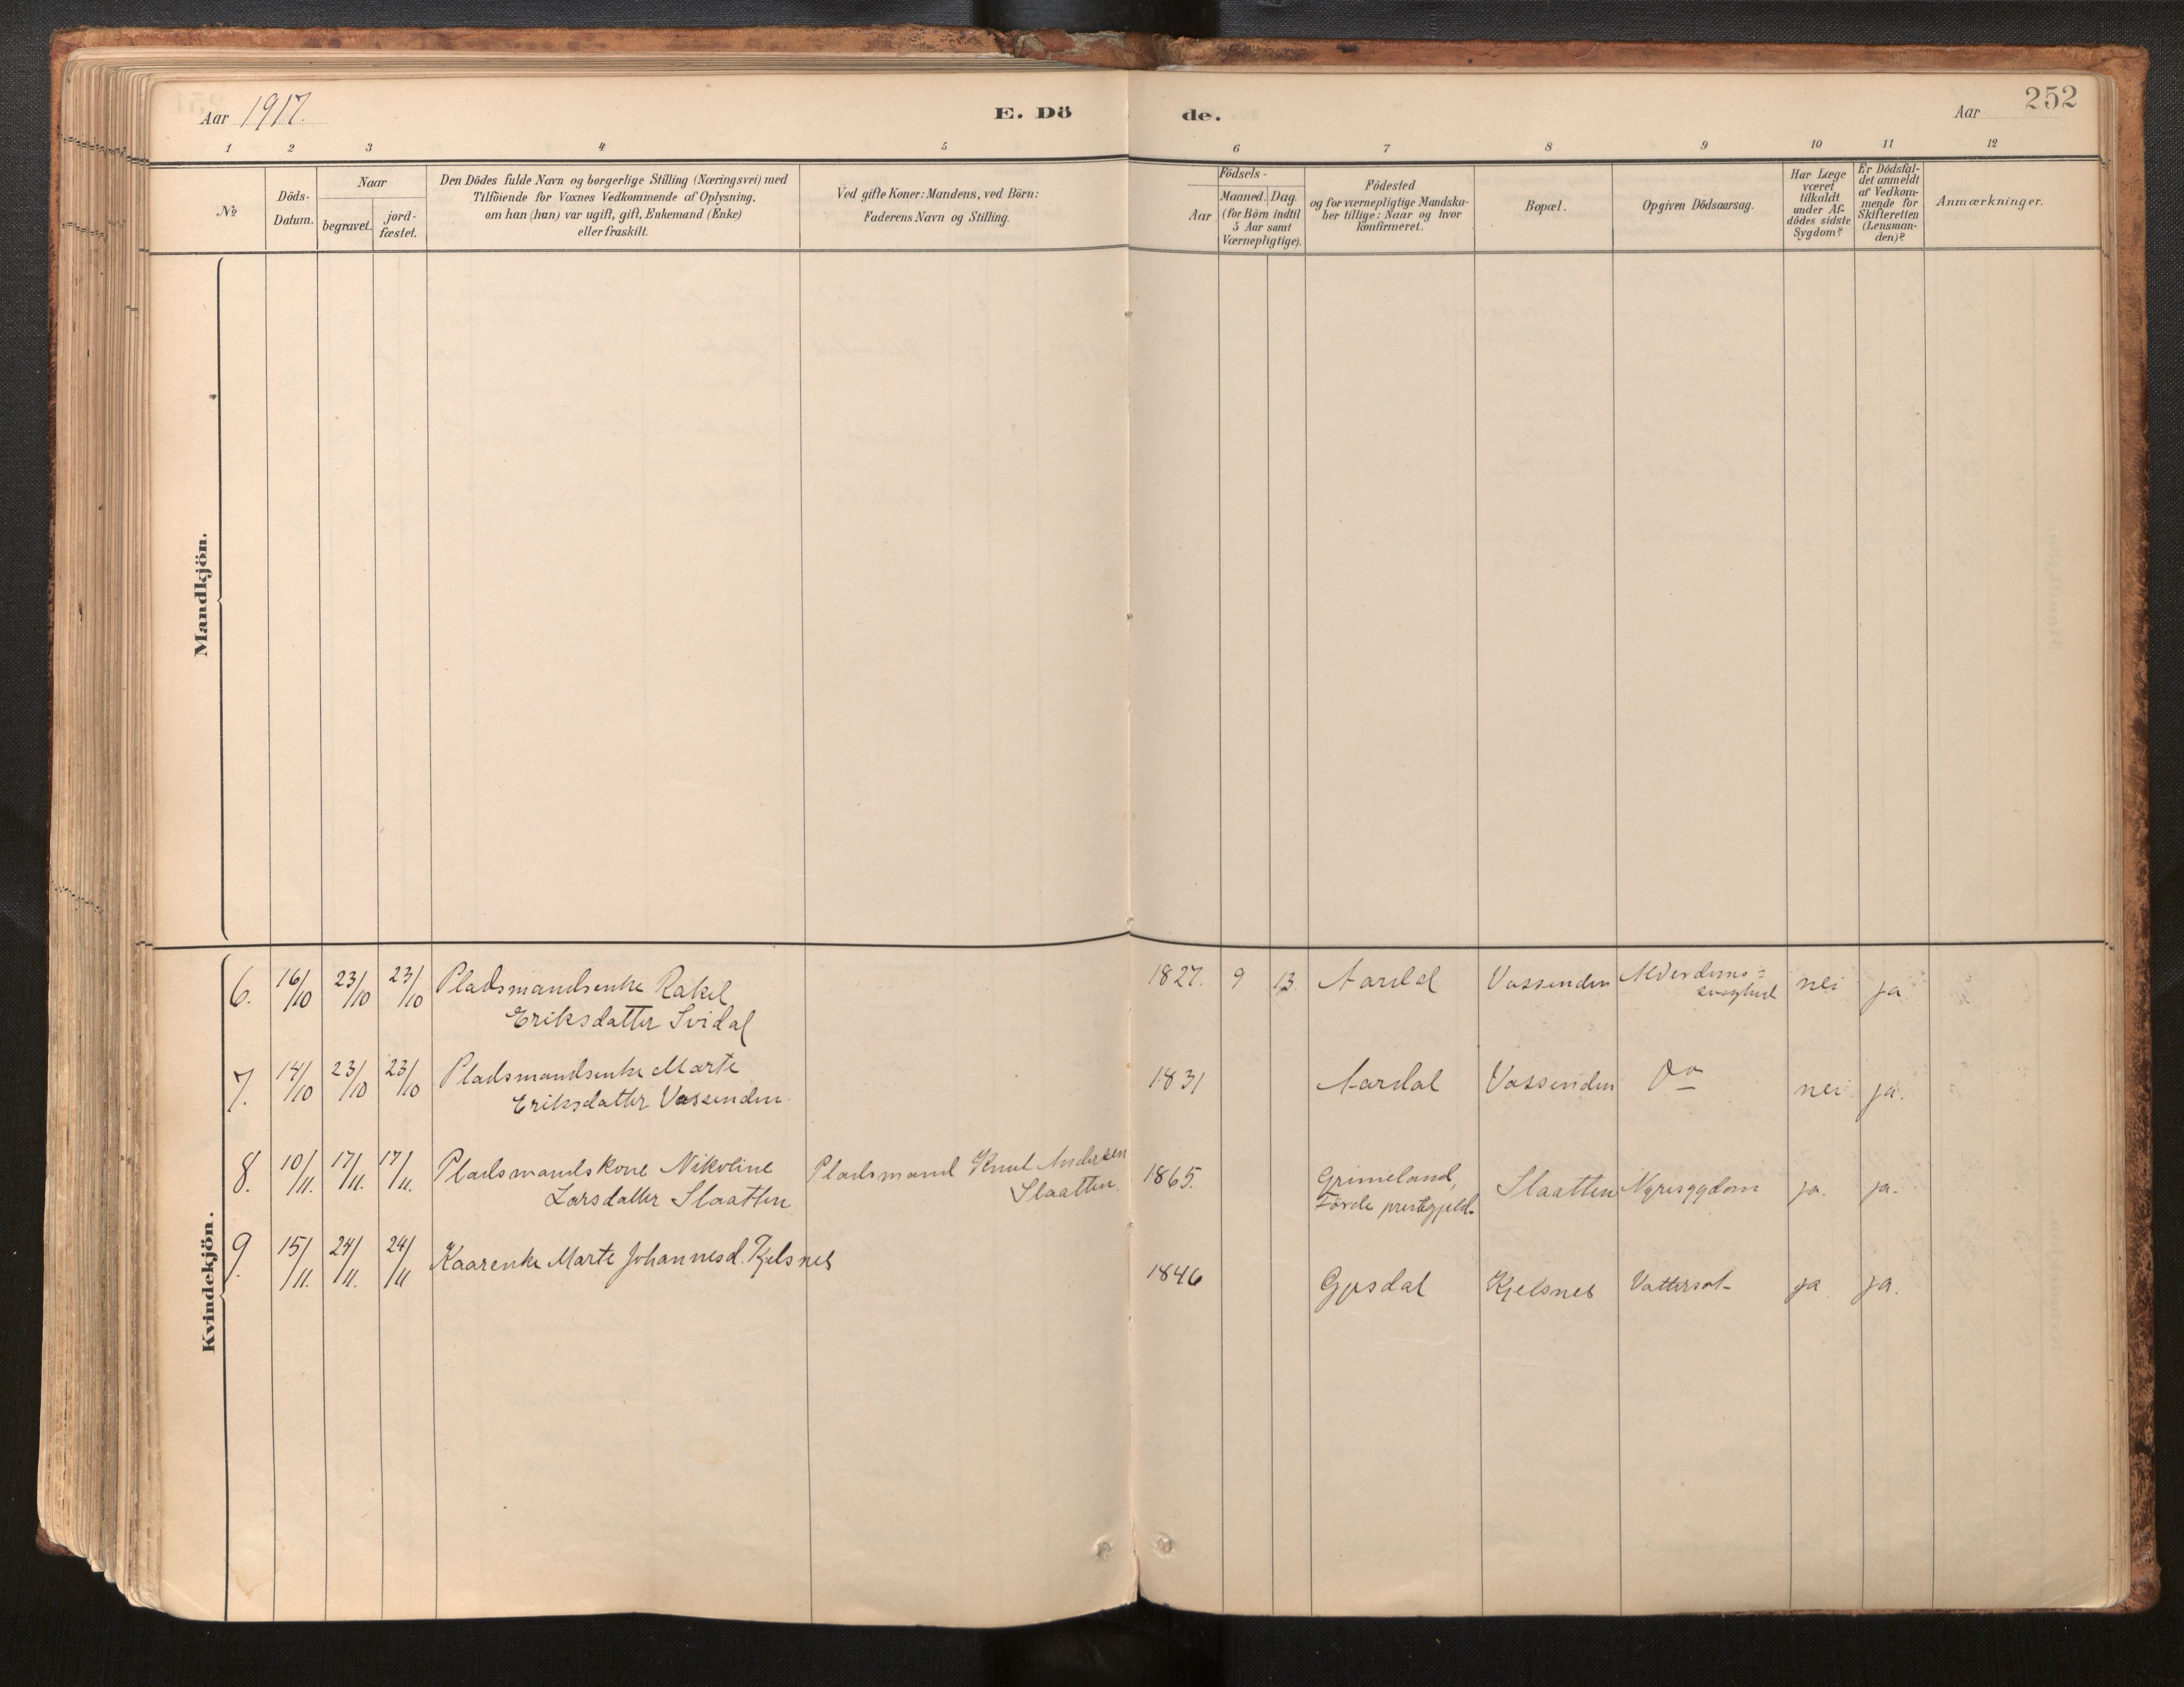 Aar 1917. E. Dö de. Aar 252
1 2 3 4 5 6 7 8 9 10 11 12
No
Döds-Datum.
Naar
begravet.
jord-fæstet.
Den Dödes fulde Navn og borgerlige Stilling (Næringsvei) med
Tilföiende for Voxnes Vedkommende af Oplysning,
om han (hun) var ugift, gift, Enkemand (Enke)
eller fraskilt.
Ved gifte Koner: Mandens, ved Börn:
Faderens Navn og Stilling.
Födsels-
Aar
Maaned. Dag.
(for Börn indtil
5 Aar samt
Værnepligtige).
Födested
og for værnepligtige Mandska-
ber tillige: Naar og hvor
konfirmeret.
Bopæl.
Opgiven Dödsaarsag.
Har Læge
været
tilkaldt
under Af-
dödes sidste
Sygdom?
Er Dödsfal-
det anmeldt
af Vedkom-
mende for
Skifteretten
(Lensman-
den)?
Anmærkninger.
Mandkjön.
Kvindekjön.
6. 16/10 23/10 23/10 Pladsmandsenke Rakel 1827. 9 13. Aardal Vassenden Alderdoms= nei ja
Eriksdatter Svidal svaghed
7. 14/10 23/10 23/10 Pladsmandsenke Marte 1831 Aardal Vassenden Do nei ja.
Eriksdatter Vassenden.
8. 10/11. 17/11. 17/11. Pladsmandskone Nikoline Pladsmand Knut Andersen 1865. Grimeland, Slaatten Nyresygdom ja. ja.
Larsdatter Slaatten Slaatten. Förde prestegjeld.
9. 15/11. 24/11. 24/11 Kaarenke Marte Johannesd. Kjelsnes 1846 Gjesdal Kjelsnes Vattersot ja ja.